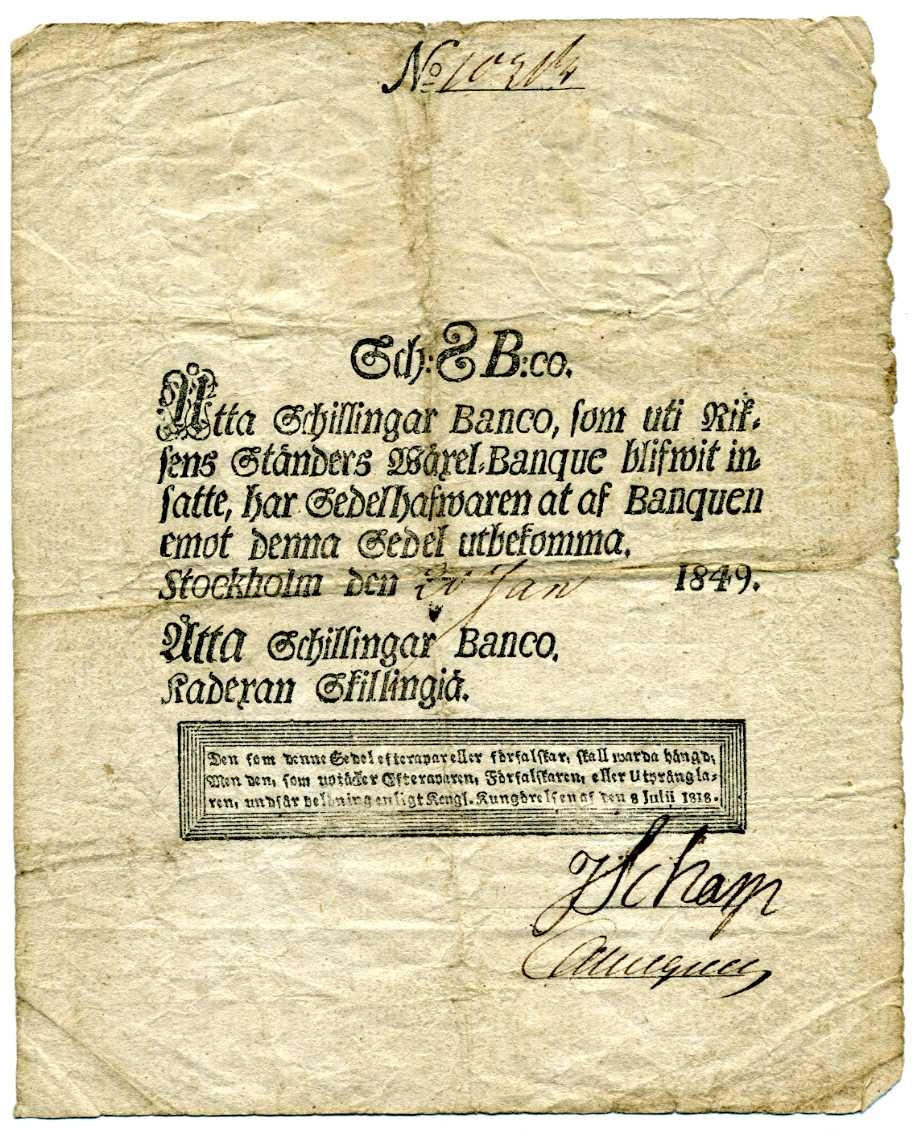 No 10314
Sch: 8 B:co.
Åtta Schillingar Banco, som uti Rik-
sens Ständers Wäxel-Banque blifwit in-
satte, har Sedelhafwaren at af Banquen
emot denna Sedel utbekomma.
Stockholm den 30 Jan 1849.
Åtta Schillingar Banco.
Kadexan Skillingiä.
Den som denne Sedel efterapar eller förfalskar, skall warda hängd;
Men den, som uptäcker Efteraparen, Förfalskaren, eller Utprångla-
ren, undfår belöning enligt Kongl. Kungörelsen af den 8 Julii 1818.
JSchapp